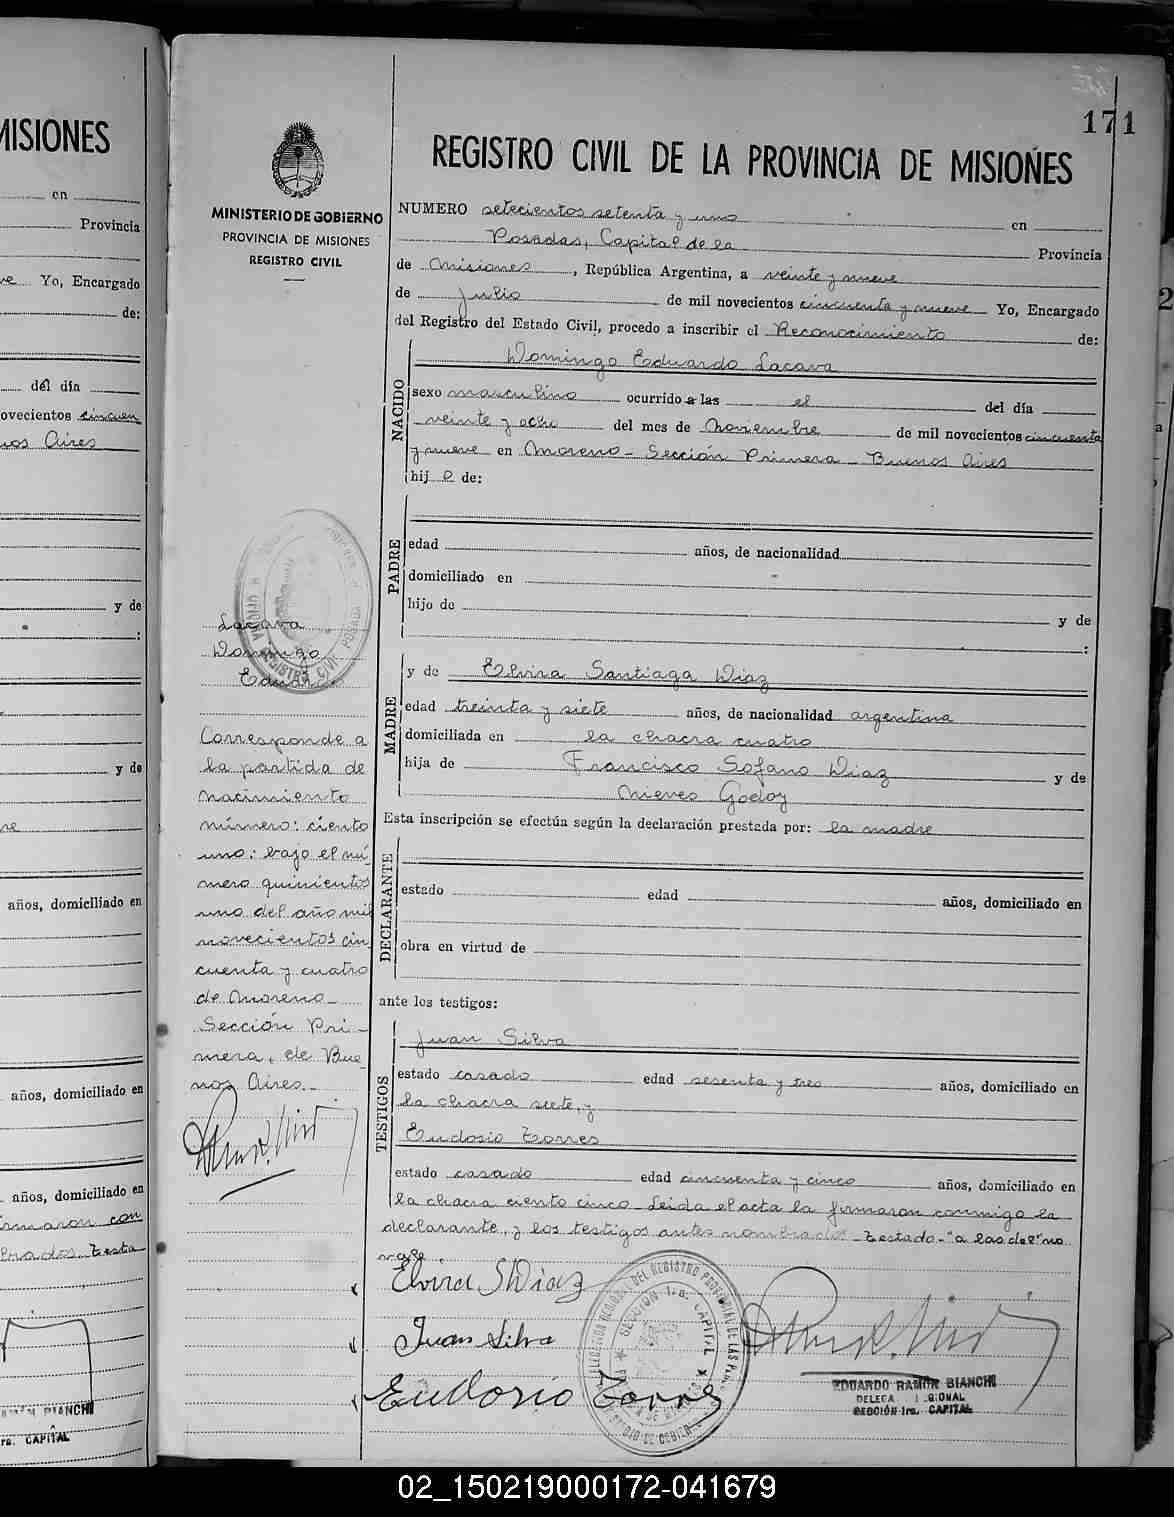 171
MISIONES
en
Provincia
Yo, Encargado
de:
del día
novecientos cincuen
Aires
y de
:
y de
años, domiciliado en
años, domiciliado en
años, domiciliado en
firmaron con
brados. Testa
BIANCHI
CAPITAL
MINISTERIO DE GOBIERNO
PROVINCIA DE MISIONES
REGISTRO CIVIL
Lacava
Domingo
Eduardo
Corresponde a
la partida de
nacimiento
número: ciento
uno: bajo el nú
mero quinientos
uno del año mil
novecientos cin
cuenta y cuatro
de Moreno
Sección Pri-
mera, de Bue
nos Aires.-
REGISTRO CIVIL DE LA PROVINCIA DE MISIONES
NUMERO setecientos setenta y uno en
Posadas, Capital de la Provincia
de Misiones, República Argentina, a veinte y nueve
de Julio de mil novecientos cincuenta y nueve Yo, Encargado
del Registro del Estado Civil, procedo a inscribir el Reconocimiento de:
Domingo Eduardo Lacava
NACIDO
sexo masculino ocurrido a las el del día
veinte y ocho del mes de Noviembre de mil novecientos cincuenta
y nueve en Moreno - Sección Primera - Buenos Aires
hijo de:
PADRE
edad años, de nacionalidad
domiciliado en
hijo de y de
:
MADRE
y de Elvira Santiaga Diaz
edad treinta y siete años, de nacionalidad argentina
domiciliada en la chacra cuatro
hija de Francisco Sofano Diaz y de
Nieves Godoy
Esta inscripción se efectúa según la declaración prestada por: la madre
DECLARANTE
estado edad años, domiciliado en
obra en virtud de
ante los testigos:
TESTIGOS
Juan Silva
estado casado edad sesenta y tres años, domiciliado en
la chacra siete, y
Eudosio Torres
estado casado edad cincuenta y cinco años, domiciliado en
la chacra ciento cinco. Leida el acta la firmaron conmigo la
declarante, y los testigos antes nombrados - Testado - "a las del" no
vale
Elvira S Diaz
Juan Silva
Eudosio Torres
EDUARDO RAMON BIANCHI
SECCIÓN 1ra. CAPITAL
02_150219000172-041679